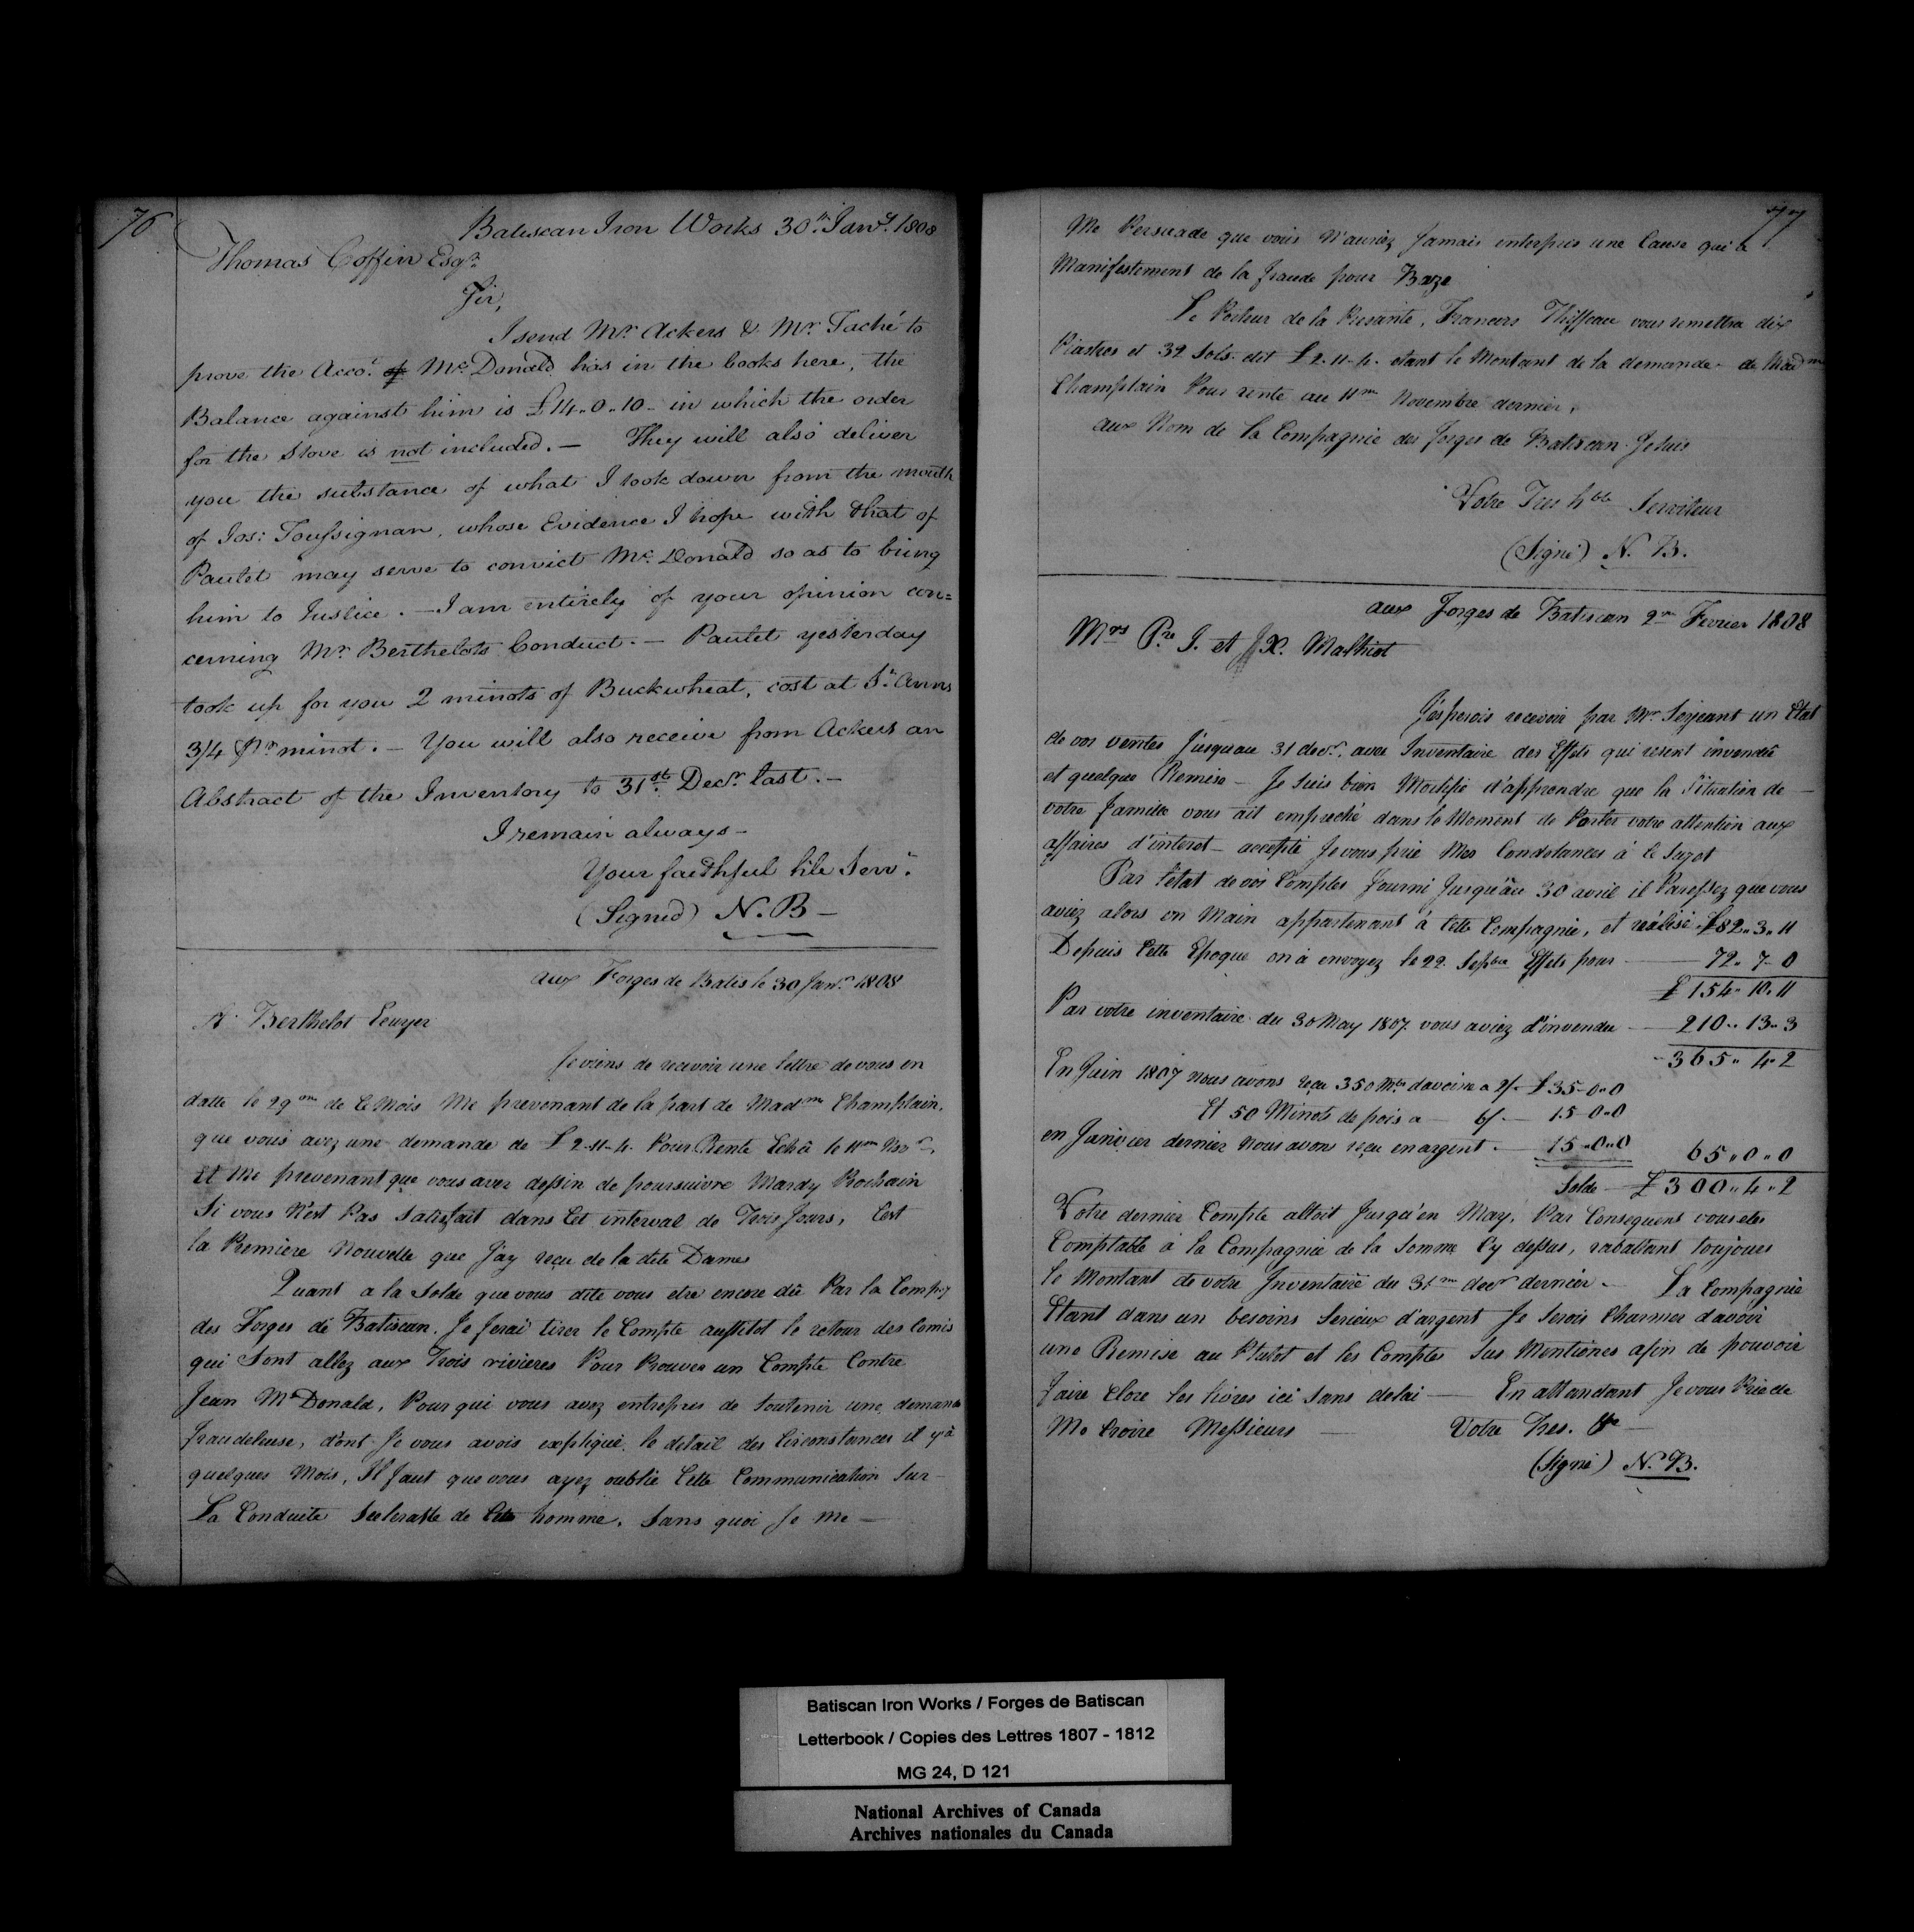 76
Batiscan Iron Works 30th. Jany. 1808
Thomas Coffin Esqr.
Sir,
I send Mr. Ackers & Mr. Taché to
prove the Acco.t of Mc.Donald has in the books here, the
Balance against him is £14..0..10- in which the order
for the Stove is not included.— They will also deliver
you the substance of what I took down from the mouth
of Jos: Toussignan, whose Evidence I hope with that of
Paulet may serve to convict Mc. Donald so as to bring
him to Justice.—I am entirely of your opinion con=
cerning Mr. Berthelots Conduct.— Paulet yesterday
took up for you 2 minots of Buckwheat, cost at St. Anns
3/4 Pr. minot.— You will also receive from Ackers an
Abstract of the Inventory to 31st. Decr. last.—
I remain always—
Your faithful hble Servt.
(Signed) N. B—
aux Forges de Batis le 30 Janr. 1808
A. Berthelot Ecuyer
Je viens de recevoir une lettre de vous en
datte le 29me de Ce Mois Me prevenant de la part de Madme Champlain,
que vous avez une demande de £2-11-4. Pour Rente Echû le 11me Novr.,
Et Me prevenant que vous avez dessin de poursuivre Mardy Prochain
Si vous N'est Pas Satisfait dans Cet interval de Trois Jours, C'est
la Premiere Nouvelle que J'ay reçu de la dite Dame
Quant a la Solde que vous dite vous etre encore dû Par la Compy
des Forges de Batiscan. Je ferai tirer le Compte aussitot le retour des Comis
qui Sont allez aux Trois rivieres Pour Prouver un Compte Contre
Jean McDonald, Pour qui vous avez entrepres de Soutenir une demande
fraudeleuse, d'ont Je vous avois expliqué le detail des Circonstances il y'a
quelques Mois, Il faut que vous ayez oublié Cette Communication Sur—
La Conduite Scelerate de homme, Sans quoi Je me—
77
Me Persuade que vous N'auriez Jamais enterpris une Cause qui a
Manifestement de la fraude pour Baze
Le Porteur de la Presente, Francois Thiffeau vous remettra dix
Piastres et 32 Sols dit £2-11-4. etant le Montant de la demande de Madme
Champlain Pour rente au 11me Novembre dernier,
aux Nom de la Compagnie des Forges de Batiscan. Je suis
Votre Tres hble Serviteur
(Signé) N. B.
aux Forges de Batiscan 2me Fevrier 1808
Mrs Pre. I. et F.X. Malhiot
J'esperois recevoir par Mr. Serjeant un Etat
de vos ventes Jusqu'au 31 decr. avec Inventaire des Effets qui resent invendû
et quelque Remise— Je Suis bien Mortifié d'apprendre que la Situation de—
votre famille vous ait empeché dans le Moment de Porter votre attention aux
affaires d'interet— accepté Je vous prie Mes Condolances à Ce Sujet
Par l'état de vos Comptes fourni Jusqu'au 30 avril il Paressez que vous
aviez alors en Main appartenant à Cette Compagnie, et réalisé £82..3..11
Depuis Cette Epoque on à envoyez le 22 Sepbre Effets pour — 72..7-0
£154..10..11
Par votre inventaire du 30 May 1807 vous aviez d'invendu — 210..13..3
365..4..2
En Juin 1807 Nous avons reçu 350 Mts d'avoine a 2/- £35-0..0
Et 50 Minots de pois a — 6/. — 15-0..0
en Janvier dernier Nous avons reçu en argent.— 15..0..0 65..0..0
Solde — £300..4..2
Votre dernier Compte alloit Jusqu'en May, Par Consequent vous etes
Comptable à la Compagnie de la Somme C'y dessus, rabattant toujours
le Montant de votre Inventaire du 31me decr dernier.— La Compagnie
Etant dans un besoins Serieux d'argent Je Serois Charmer d'avoir
une Remise au Plutot et les Comptes Sus Mentiones afin de pouvoir
faire Clore les livres ici Sans delai— En attendant Je vous Prie de
Me Croire Messieurs — Votre Tres. —
(Signé) N. B.
Batiscan Iron Works / Forges de Batiscan
Letterbook / Copies des Lettres 1807 - 1812
MG 24, D 121
National Archives of Canada
Archives nationales du Canada